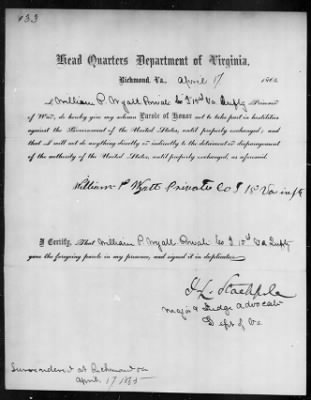 133
Head Quarters Department of Virginia,
Richmond, Va., April 17 186
I William P. Wyatt Privat Co I 15th Va Infty Prisoner
of War, do hereby give my solemn Parole of Honor not to take part in hostilities
against the Government of the United States, until properly exchanged; and
that I will not do anything directly or indirectly to the detriment or disparagement
of the authority of the United States, until properly exchanged, as aforesaid.
William P Wyatt Private Co I 15 Va inft
I Certify, That William P. Wyatt Privat Co I 15th Va Infty
gave the foregoing parole in my presence, and signed it in duplicate.
J. L. Stackpole
Major & Judge Advocate
Dept of Va
Surrendered at Richmond Va
April 17 1865